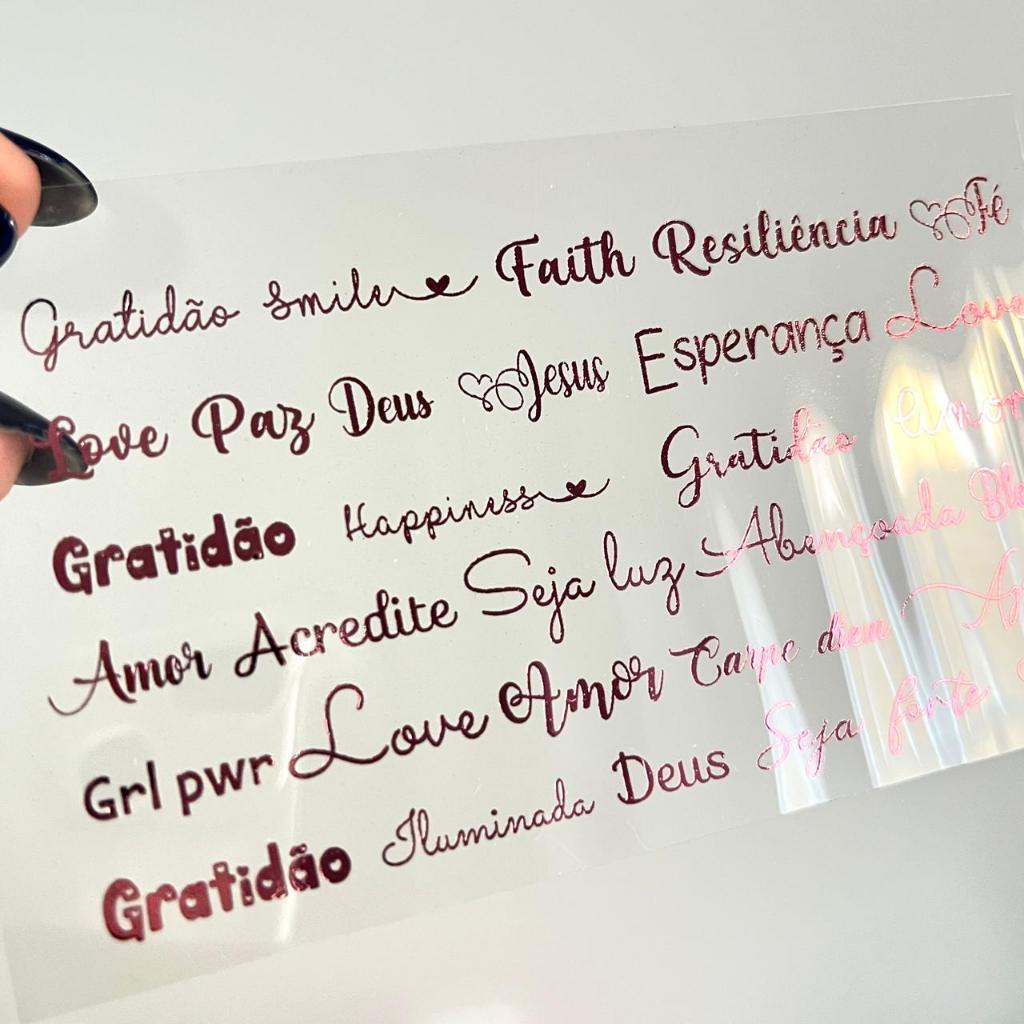 Gratidão Smile Faith Resiliência Fé
Love Paz Deus Jesus Esperança Love
Gratidão Happiness Gratidão Amor
Amor Acredite Seja luz Abençoada
Grl pwr Love Amor Carpe diem
Gratidão Iluminada Deus Seja forte